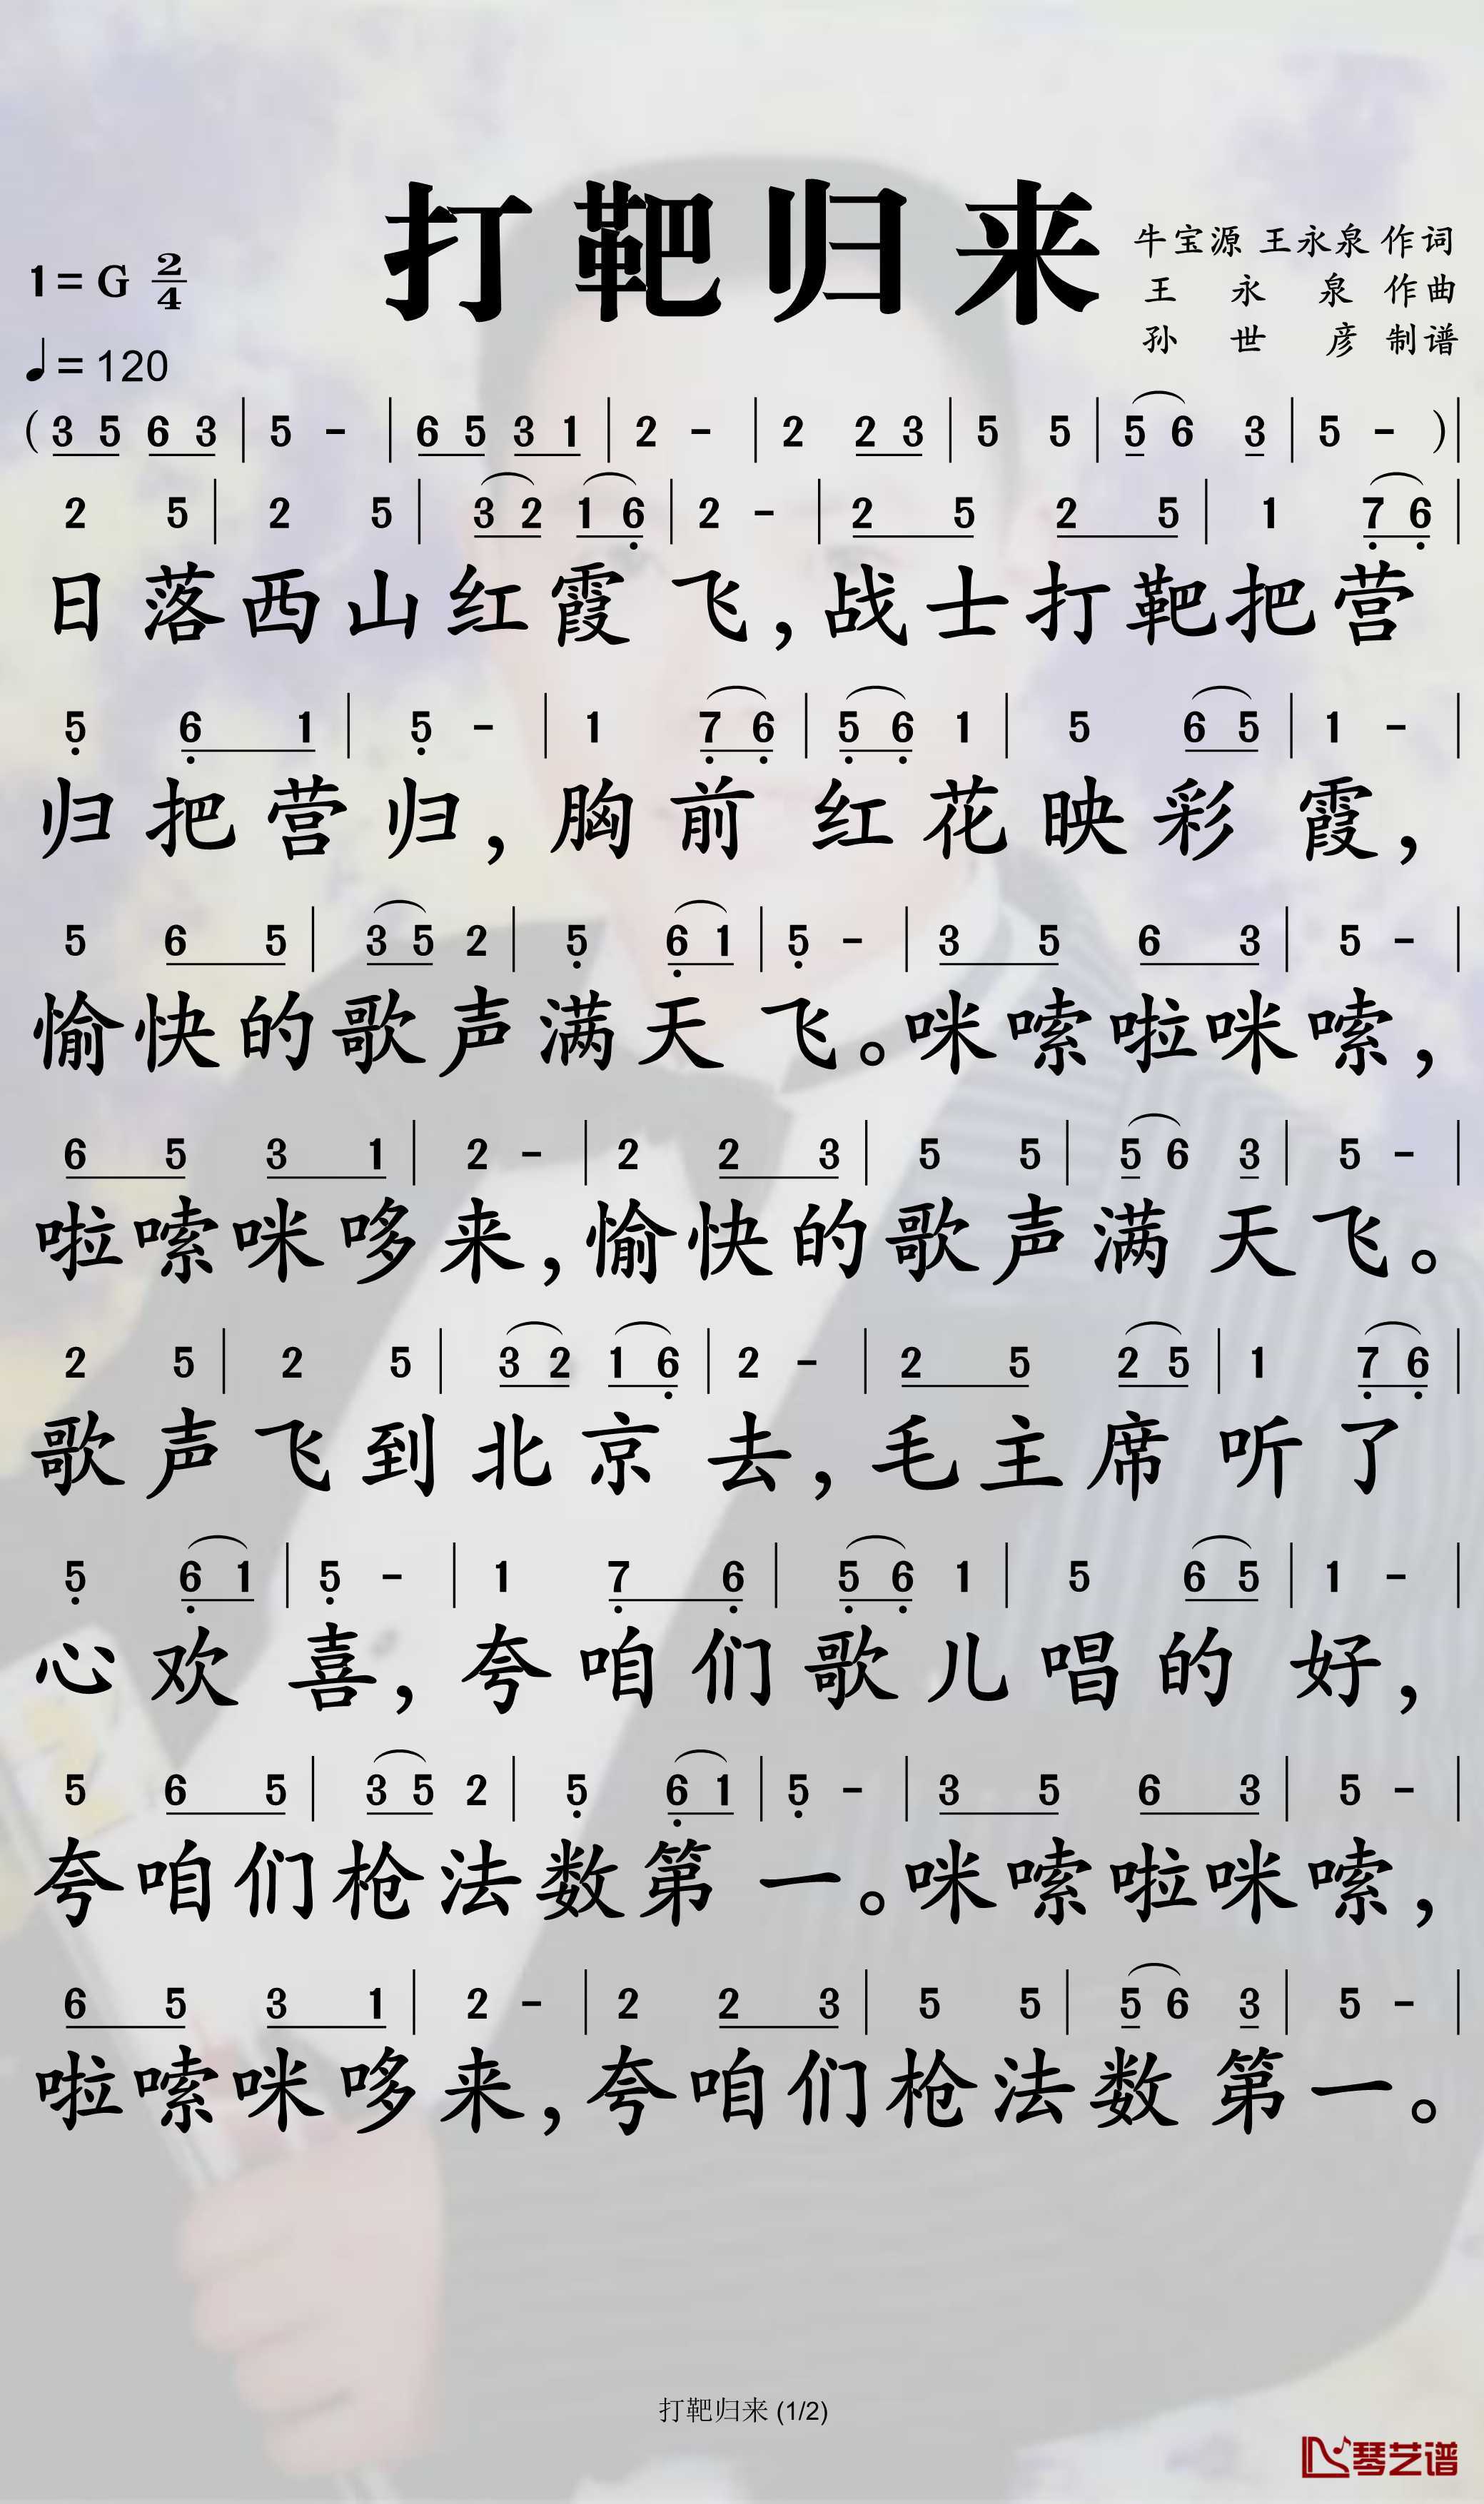 打靶归来
牛宝源 王永泉 作词
1=G 2/4
王 永 泉 作曲
♩=120
孙 世 彦 制谱
(3 5 6 3 | 5 - | 6 5 3 1 | 2 - | 2 2 3 | 5 5 | 5 6 3 | 5 - )|
2 5 | 2 5 | 3 2 1 6̣ | 2 - | 2 5 2 5 | 1 7̣ 6̣ |
日落西山红霞飞,战士打靶把营
5̣ 6̣ 1 | 5̣ - | 1 7̣ 6̣ | 5̣ 6̣ 1 | 5 6 5 | 1 - |
归把营归,胸前红花映彩霞,
5 6 5 | 3 5 2 | 5̣ 6̣ 1 | 5̣ - | 3 5 6 3 | 5 - |
愉快的歌声满天飞。咪嗦啦咪嗦,
6 5 3 1 | 2 - | 2 2 3 | 5 5 | 5 6 3 | 5 - |
啦嗦咪哆来,愉快的歌声满天飞。
2 5 | 2 5 | 3 2 1 6̣ | 2 - | 2 5 2 5 | 1 7̣ 6̣ |
歌声飞到北京去,毛主席听了
5̣ 6̣ 1 | 5̣ - | 1 7̣ 6̣ | 5̣ 6̣ 1 | 5 6 5 | 1 - |
心欢喜,夸咱们歌儿唱的好,
5 6 5 | 3 5 2 | 5̣ 6̣ 1 | 5̣ - | 3 5 6 3 | 5 - |
夸咱们枪法数第一。咪嗦啦咪嗦,
6 5 3 1 | 2 - | 2 2 3 | 5 5 | 5 6 3 | 5 - |
啦嗦咪哆来,夸咱们枪法数第一。
打靶归来 (1/2)
琴艺谱